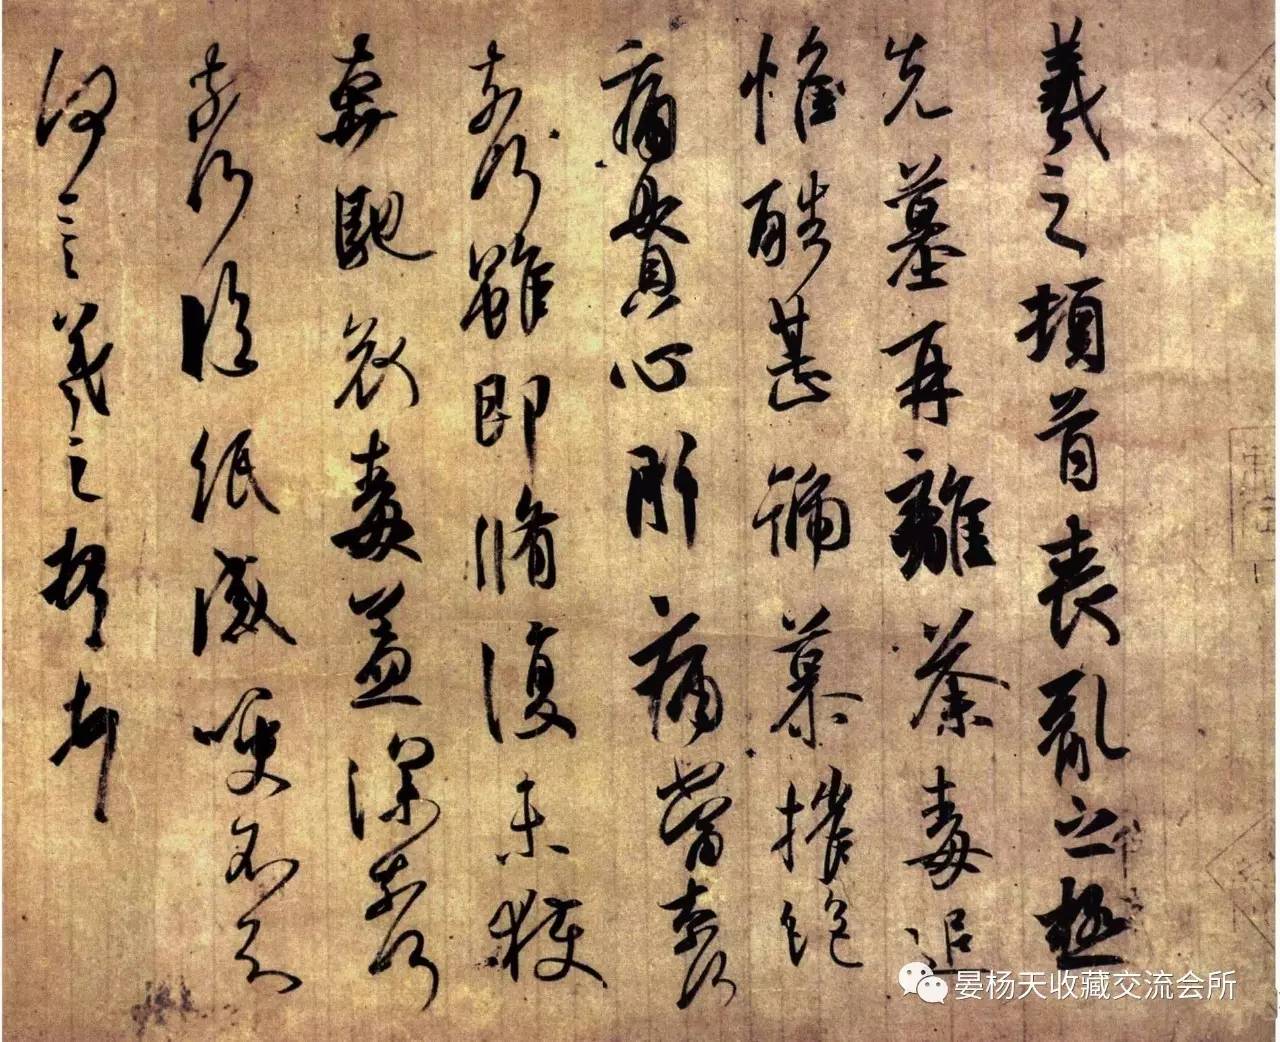 羲之頓首喪亂之極
先墓再離荼毒追
惟酷甚號慕摧絕
痛貫心肝痛當柰何
柰何雖即脩復未獲
奔馳哀毒益深柰何
柰何臨紙感哽不知
何言羲之頓首頓首
晏杨天收藏交流会所